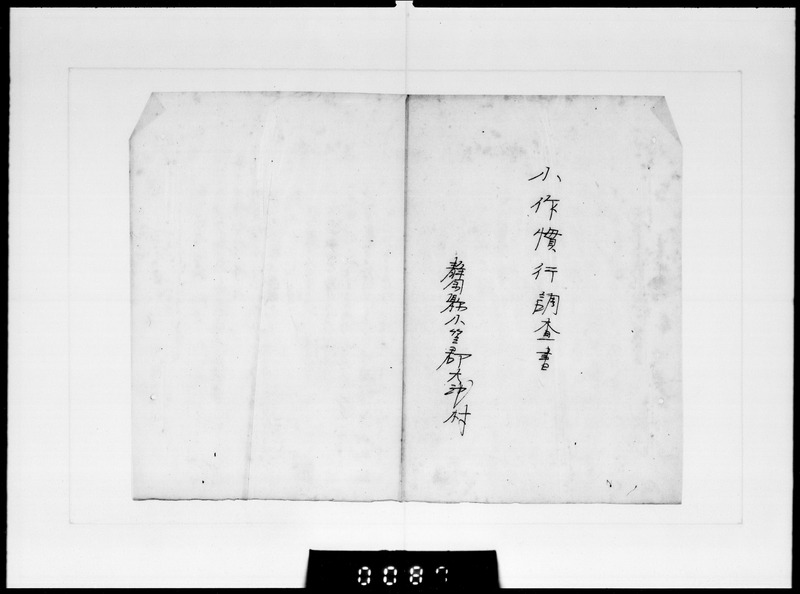 小作慣行調査書
静岡縣小笠郡大池村
0087